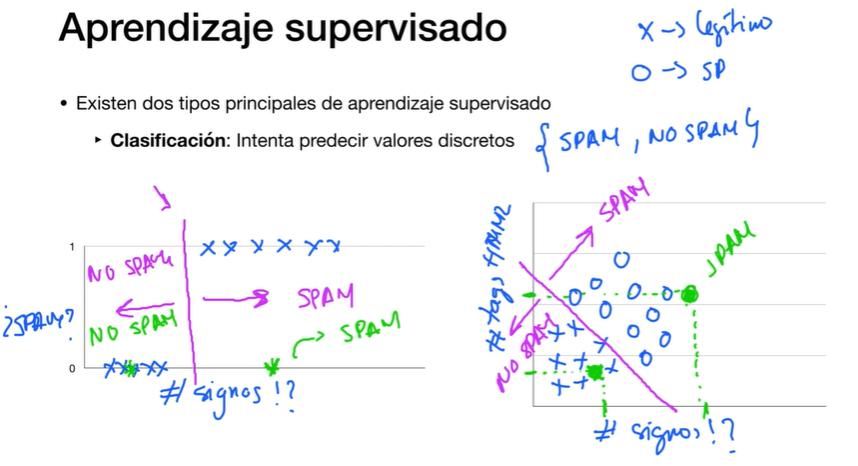 Aprendizaje supervisado
x → legítimo
o → SP
• Existen dos tipos principales de aprendizaje supervisado
‣ Clasificación: Intenta predecir valores discretos
{ SPAM, NO SPAM }
1
NO SPAM
SPAM
¿SPAM?
NO SPAM
SPAM
0
# signos !?
SPAM
# tags HTML
SPAM
NO SPAM
# signos !?